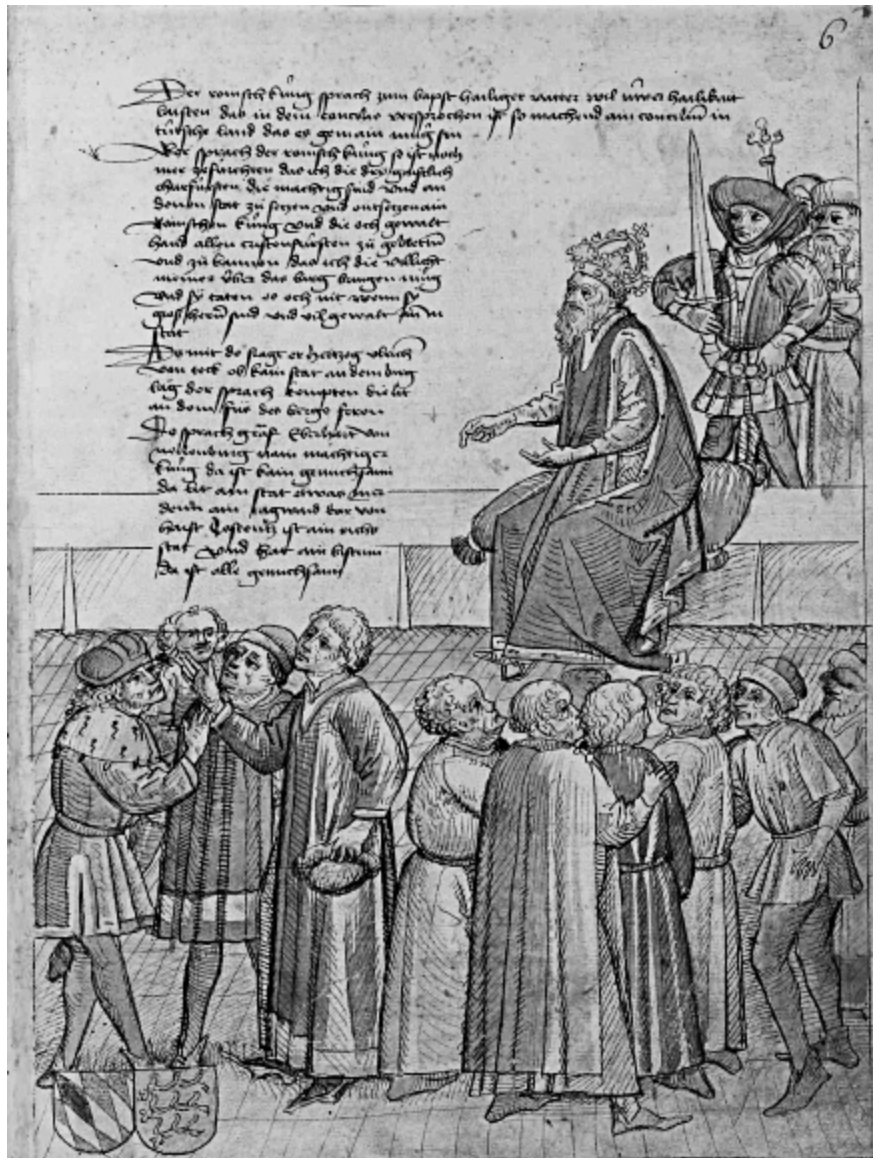 6
Der romsch kúng sprach zum bapst hailiger vatter wil úwer hailikait
laisten das in dem concily versprochen ist so machend ain concilium in
tútsche land das es gemain múg sin
sprach der romisch kúng so ist noch
mer das ich die dry gaistlich
churfúrsten die machtig sind vnd an
denen stat zu setzen vnd entsetzen ain
Romischen kúng vnd die och gewalt
hand allen cristenfúrsten zu gebieten
vnd zu bannen das ich die villicht
niemer úber das birg bringen múg
vnd sy taten es och nit wenn sy
gross herren sind vnd vil gewalt
stat
mit do fragt er hertzog vlrich
von teck ob kain stat an dem birg
lag der sprach kempten die lit
an dem fúss des bergs feren
Do sprach graf Eberhart von
nellenburg machtiger
kúng da ist kain gnuchsami
da lit ain stat etwas
denn ain tagwaid dar von
haist Costentz ist ain richs
stat vnd hat ain bistum
da ist alle gnuchsami